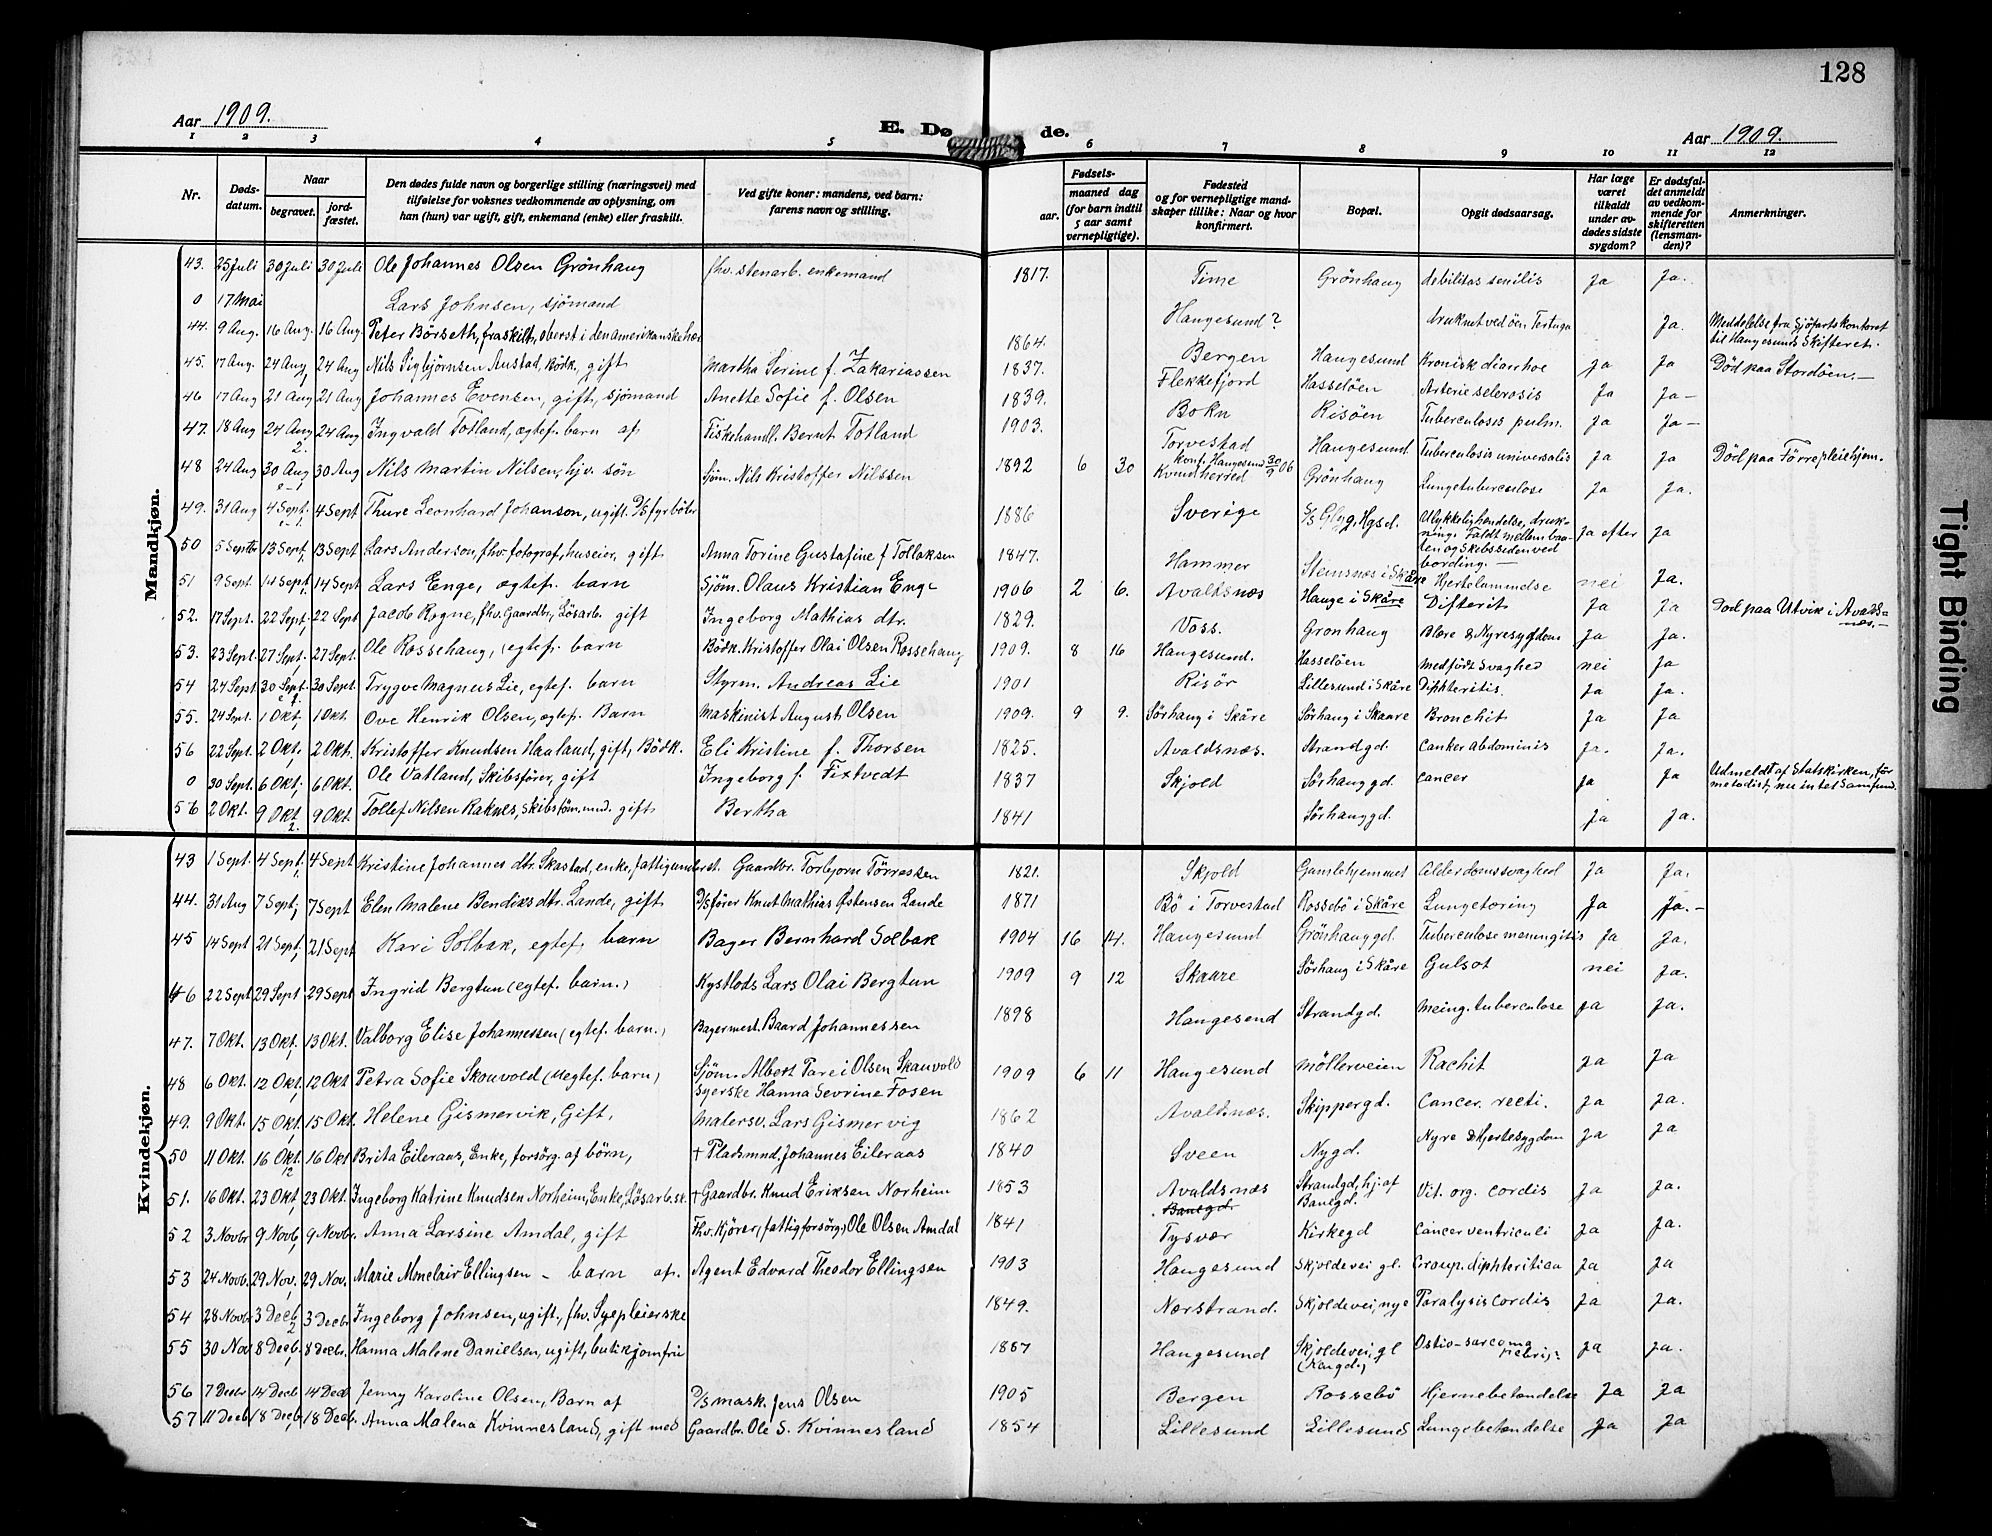 128
Aar 1909.
E. Dø de.
Aar 1909.
1 2 3 4 5 6 7 8 9 10 11 12
Nr.
Døds-datum.
Naar
begravet.
jord-fæstet.
Den dødes fulde navn og borgerlige stilling (næringsvei) med
tilføielse for voksnes vedkommende av oplysning, om
han (hun) var ugift, gift, enkemand (enke) eller fraskilt.
Ved gifte koner: mandens, ved barn:
farens navn og stilling.
Fødsels-
aar.
maaned dag
(for barn indtil
5 aar samt
vernepligtige).
Fødested
og for vernepligtige mand-
skaper tillike: Naar og hvor
konfirmert.
Bopæl.
Opgit dødsaarsag.
Har læge
været
tilkaldt
under av-
dødes sidste
sygdom?
Er dødsfal-
det anmeldt
av vedkom-
mende for
skifteretten
(lensman-
den)?
Anmerkninger.
Mandkjøn.
43. 25 Juli 30 Juli 30 Juli Ole Johannes Olsen Grönhaug fhv. stenarb. enkemand 1817. Time Grönhaug debilitas senilis Ja Ja.
0 17 Mai Lars Johnsen, sjömand Haugesund? druknet ved öen Tortuga Ja. Meddelelse fra Sjöfartskontoret
til Haugesunds Skifteret.
44. 9 Aug. 16 Aug. 16 Aug. Peter Börseth, fraskilt, oberst i den amerikanske hær 1864. Bergen Haugesund Kronisk diarrhoe Ja Ja Död paa Stordöen.—
45. 17 Aug. 24 Aug 24 Aug Nils Sigbjörnsen Austad, Bödk., gift Martha Serine f. Zakariassen 1837. Flekkefjord Hasselöen Arterie selerosis Ja Ja—
46 17 Aug 21 Aug 21 Aug Johannes Evensen, gift, sjömand Anette Sofie f. Olsen 1839. Bokn Risöen Tuberculosis pulm. Ja Ja—
47. 18 Aug 24 Aug 24 Aug Ingvald Totland, ægtef. barn af Fiskehandl. Bernt Totland 1903. Torvestad Haugesund Tuberculosis universalis Ja Ja Död paa Förre pleiehjem.
48 24 Aug 30 Aug 30 Aug Nils Martin Nilsen, hjv. sön Sjöm. Nils Kristoffer Nilssen 1892 6 30 konf. Haugesund 30/9 06
Kvindherred Grönhaug Lungetuberculose Ja Ja.
49. 31 Aug 4 Sept. 4 Sept Thure Leonhard Johanson, ugift. D/S fyrböter 1886 Sverige Hgsd. Ulykkelighendelse, druk-
ning. Faldt mellem baa-
ten og Skibssiden ved
bording.— Ja efter Ja
50 5 Septbr 13 Sept. 13 Sept Lars Anderson, fhv. fotograf, huseier, gift Anna Torine Gustafine f Tollaksen 1847. Hammer Steinsnes i Skåre Hjertelammelse nei Ja.
51 9 Sept. 14 Sept. 14 Sept Lars Enge, ægtef. barn Sjöm. Olaus Kristian Enge 1906 2 6. Avaldsnæs Hauge i Skåre Difterit Ja Ja Död paa Utvik i Avalds-
næs.—
52. 17 Sept. 22 Sept. 22 Sept Jacob Rogne, fhv. Gaardbr., Lösarb. gift Ingeborg Mathias dtr. 1829. Voss. Gronhaug Blære & Nyresygdom Ja Ja.
53. 23 Sept. 27 Sept. 27 Sept. Ole Rossehaug, (egtef. barn Bödk. Kristoffer Olai Olsen Rossehaug 1909. 8 16 Haugesund. Hasselöen Medfödt Svaghed nei Ja
54 24 Sept 30 Sept. 30 Sept. Trygve Magnus Lie, egtef. barn Styrm. Andreas Lie 1901 Risör Lillesund i Skåre Diphteritis. Ja Ja.
55. 24 Sept. 1 Okt. 1 Okt. Ove Henrik Olsen, egtef. Barn Maskinist August Olsen 1909. 9 9. Sörhaug i Skåre Sörhaug i Skaare Bronchit Ja Ja
56 22 Sept. 2 Okt. 2 Okt. Kristoffer Knudsen Haaland, gift, Bödk. Eli Kristine f. Thorsen 1825. Avaldsnæs. Strandgd. Canker abdominis Ja. Ja.
0 30 Sept. 6 Okt. 6 Okt. Ole Vatland, Skibsfører, gift Ingeborg f. Fixtvedt 1837 Skjold Sörhauggd. Cancer Ja Ja Udmeldt af Statskirken, før
metodist, nu intet Samfund.
56 2 Okt. 9 Okt. 9 Okt. Tollef Nilsen Raknes, Skibstöm.md. gift Bertha 1841 Sörhauggd. Ja Ja.
Kvindekjøn.
43 1 Sept. 4 Sept. 4 Sept Kristine Johannes dtr. Skastad, enke, fattigunderst. Gaardbr. Torbjorn Törresten 1821. Skjold Gamlehjemmet Alderdomssvaghed Ja Ja.
44. 31 Aug 7 Sept. 7 Sept Elen Malene Bendiksdtr. Lande, gift D/S fører Knut Mathias Østensen Lande 1871 Bö i Torvestad Rossebö i Skåre Lungetæring Ja Ja.—
45 14 Sept 21 Sept. 21 Sept Kari Solbak, egtef. barn Bager Bernhard Solbak 1904 16 14. Haugesund Grönhauggd. Tuberculose meningitis Ja Ja.
46 22 Sept 29 Sept 29 Sept Ingrid Bergtun (egtef. barn.) Kystlods Lars Olai Bergtun 1909 9 12 Skaare Sörhaug i Skåre Gulsot nei Ja.
47. 7 Okt. 13 Okt. 13 Okt. Valborg Elise Johannessen (egtef. barn.) Bagermest. Baard Johannessen 1898 Haugesend Strandgd. Mening. tuberculose Ja Ja.
48 6 Okt. 12 Okt. 12 Okt Petra Sofie Skouvold (uegtef. barn) Sjöm. Albert Tarei Olsen Skauvold
Syerske Hanna Sevrine Fosen 1909 6 11 Haugesund Möllerveien Rachit Ja Ja
49. 9 Okt. 15 Okt. 15 Okt. Helene Gismervik, Gift, Malersv. Lars Gismervig 1862 Avaldsnæs. Skippergd. Cancer. recti. Ja Ja.
50 11 Okt. 16 Okt. 16 Okt Brita Eileraas, Enke, forsörg. af börn, + Pladsmnd. Johannes Eileraas 1840 Sveen Nygd. Nyre & Hjertesygdom Ja Ja
51. 16 Okt. 23 Okt. 23 Okt. Ingeborg Katrine Knudsen Norheim, Enke, Lösarb.sk. + Gaardbr. Knud Eriksen Norheim 1853 Avaldsnæs Strandgd, hj. af
Banegd. Vit. org. cordis Ja Ja.
Banegd.
52 3 Novbr 9 Novb. 9 Novbr. Anna Larsine Amdal, gift Fhv. Kjörer, (fattigforsörg.) Ole Olsen Amdal 1841 Tysvær Kirkegd Cancer ventriculi Ja Ja.
53 24 Novb. 29 Nov. 29 Nov. Marie Monclair Ellingsen – barn af. Agent Edvard Theodor Ellingsen 1903 Haugesund Skjoldevei gl. Croup. diphteritica Ja Ja
54 28 Novbr 3 Decb 3 Decbr Ingeborg Johnsen, ugift., fhv. Sygepleierske 1849. Nærstrand. Skjoldevei, nye Paralysis cordis Ja Ja.
55 30 Nov 8 Decb. 8 Decbr. Hanna Malene Danielsen, ugift, butikjomfru 1887 Haugesund Skjoldevei, gl Ostio-sarcoma Ja Ja.
56 7 Decbr 14 Decb 14 Decb Jenny Karoline Olsen, Barn af D/S mask. Jens Olsen 1905 Bergen Rossebö Hjernebetændelse Ja Ja
57 11 Decb 18 Decb. 18 Decb. Anna Malena Kvinnesland, gift med Gaardbr. Ole S. Kvinnesland 1854 Lillesund Lillesund Lungebetændelse Ja Ja
Tight Binding